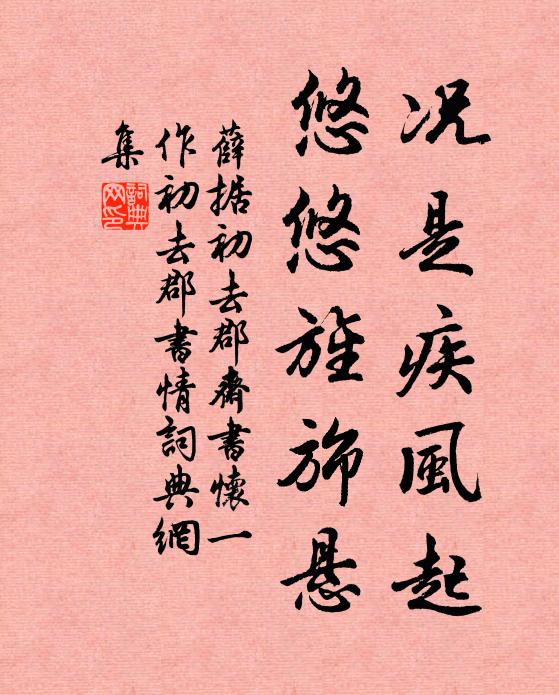 况是疾風起
悠悠旌斾悬
薛據初去郡齋書懷一
作初去郡書情詞典網
集
詞典
网印